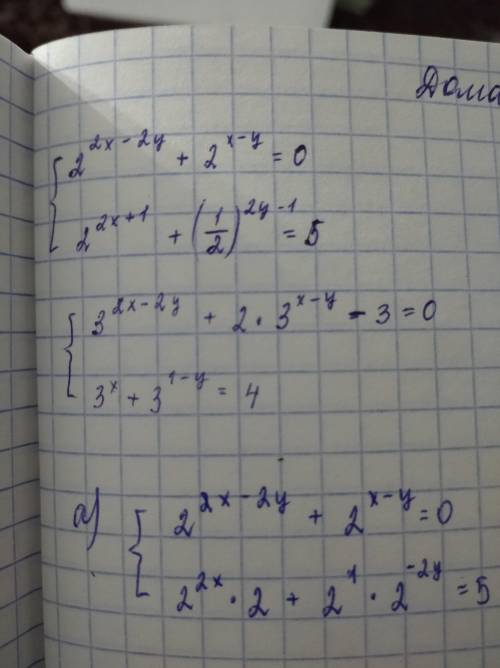 Дома
2^{2x-2y} + 2^{x-y} = 0
2^{2x+1} + (1/2)^{2y-1} = 5
3^{2x-2y} + 2 · 3^{x-y} - 3 = 0
3^x + 3^{1-y} = 4
а) 2^{2x-2y} + 2^{x-y} = 0
2^{2x} · 2 + 2^1 · 2^{-2y} = 5